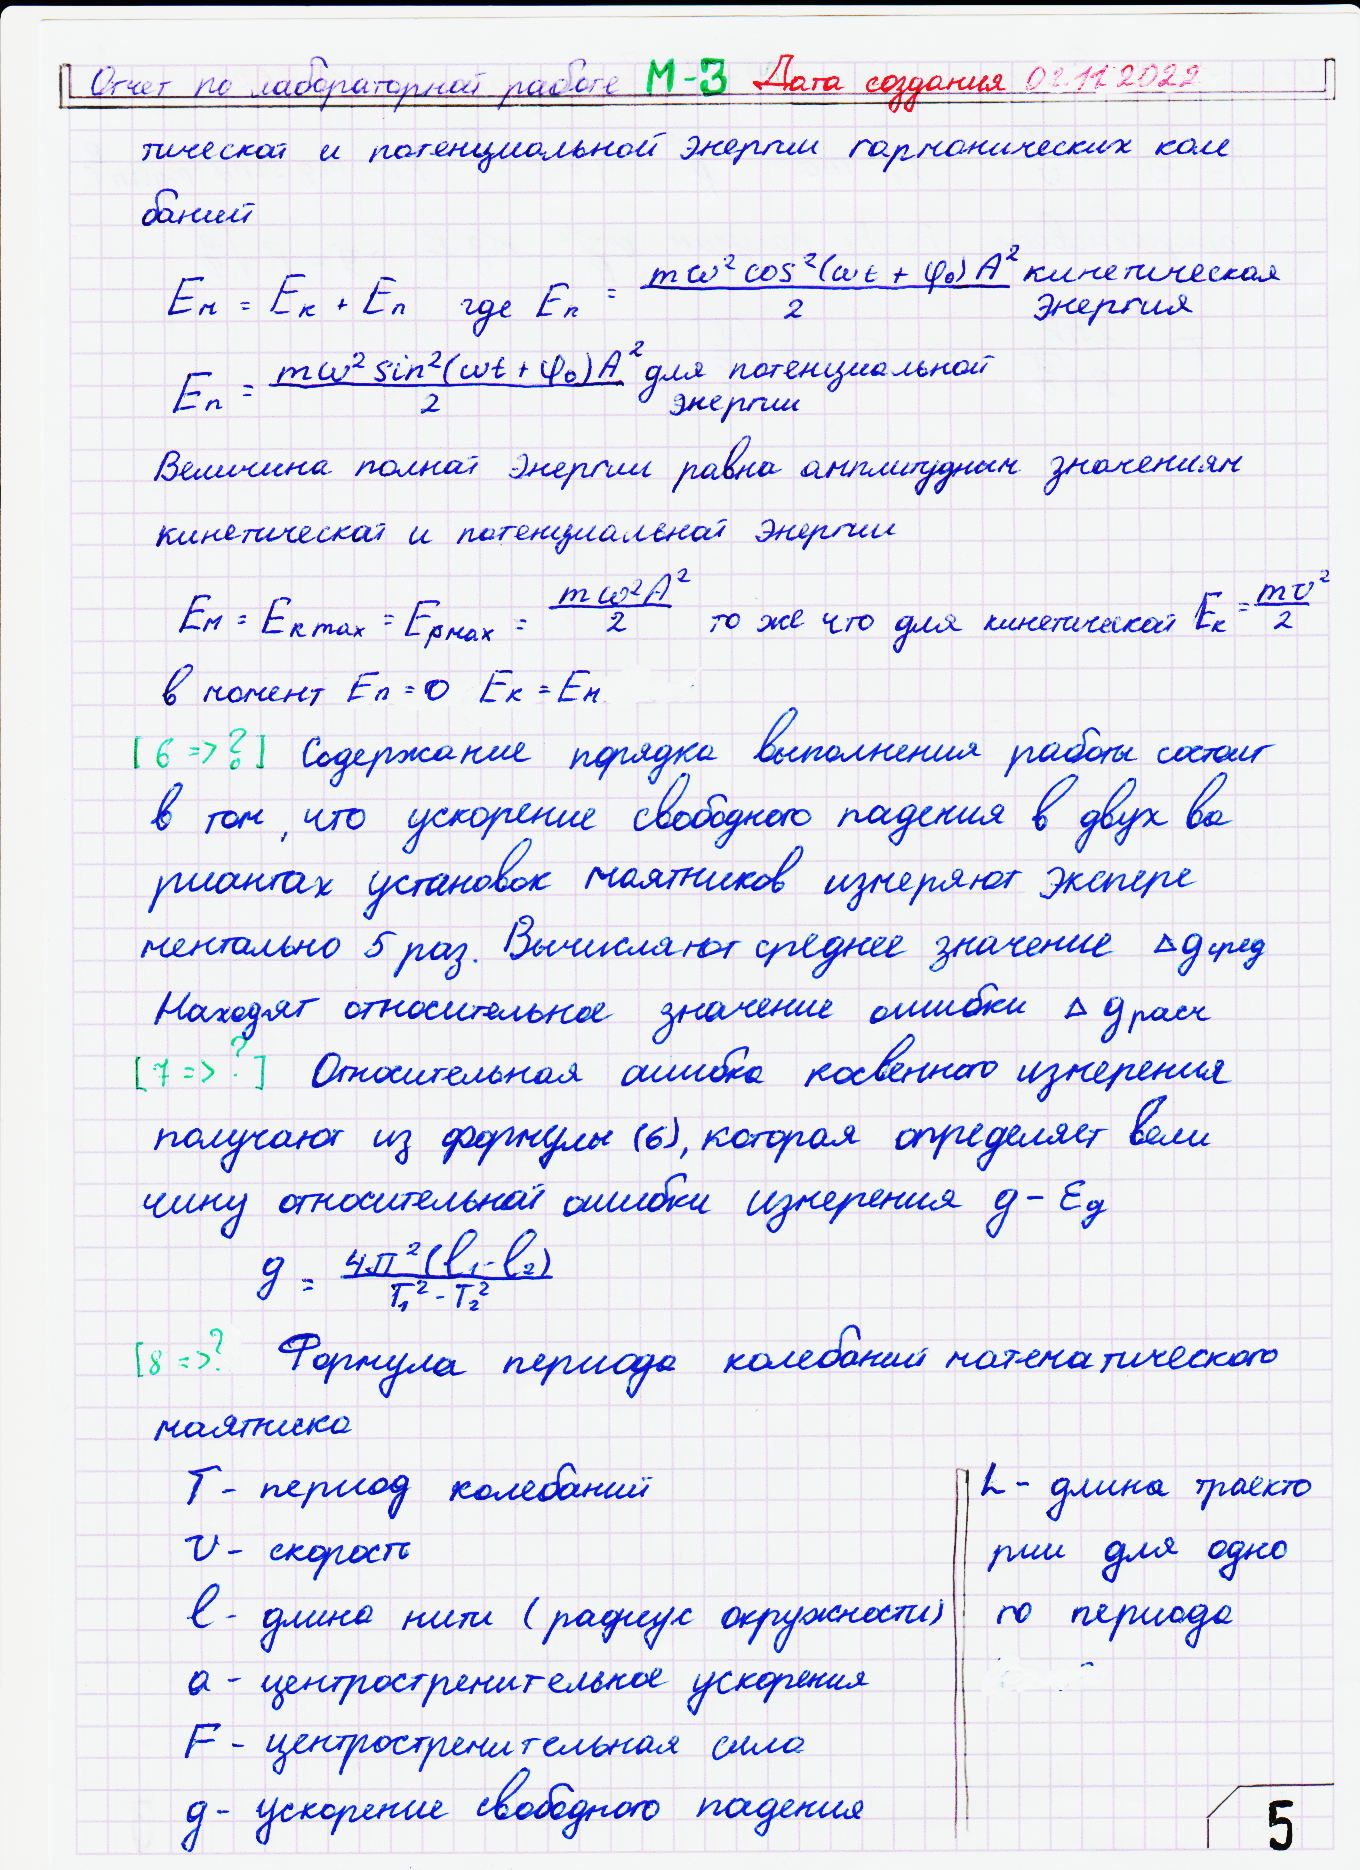 Отчет по лабораторной работе М-3 Дата создания 02.11.2022
тической и потенциальной энергии гармонических коле
баний
Eм = Eк + Eп где Eп = mω² cos²(ωt + φ₀) A² / 2 кинетическая энергия
Eп = mω² sin²(ωt + φ₀) A² / 2 для потенциальной энергии
Величина полной энергии равна амплитудным значениям
кинетической и потенциальной энергии
Eм = Eк max = Eр мах = mω²A² / 2 то же что для кинетической Eк = mv² / 2
в момент Eп = 0 Eк = Eм
[6 => ?] Содержание порядка выполнения работы состоит
в том, что ускорение свободного падения в двух ва
риантах установок маятников измеряют экспере
ментально 5 раз. Вычисляют среднее значение Δg сред
Находят относительное значение ошибки Δ g расч
[7 => ?] Относительная ошибка косвенного измерения
получают из формулы (6), которая определяет вели
чину относительной ошибки измерения g - Eg
g = 4π²(l₁ - l₂) / T₁² - T₂²
[8 => ? Формула периода колебаний математического
маятника
T - период колебаний
v - скорость
l - длина нити (радиус окружности)
a - центростремительное ускорения
F - центростремительная сила
g - ускорение свободного падения
L - длина траекто
рии для одно
го периода
5